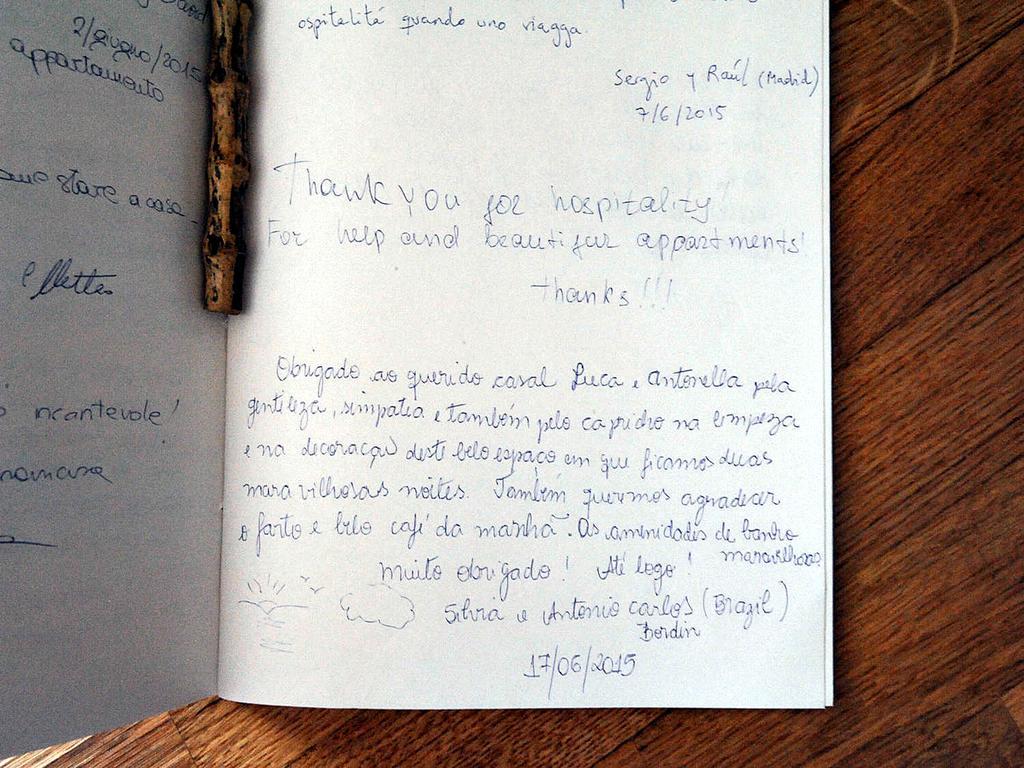 2/giugno/2015
appartamento
stare a casa
incantevole!
ospitalità quando uno viagga.
Sergio y Raúl (Madrid)
7/6/2015
Thank you for hospitality!
For help and beautifur appartments!
thanks!!!
Obrigado ao querido casal Luca e Antonella pela
gentileza, simpatia e também pelo capricho na limpeza
e na decoração deste belo espaço em que ficamos duas
maravilhosas noites. Também queremos agradecer
o farto e belo café da manhã. As amenidades de banho
maravilhosas
Muito obrigado! Até logo!
Silvia e Antonio Carlos (Brazil)
Bordin
17/06/2015